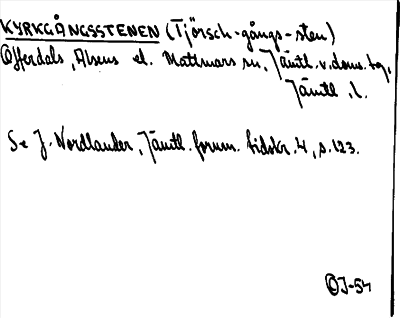 KYRKGÅNGSSTENEN (Tjörsch-gångs-sten)
Offerdals, Alsens el. Mattmars sn, Jämtl. v. doms. tg,
Jämtl. l.
Se J. Nordlander, Jämtl. fornm. tidskr. 4, s. 123.
OJ-54